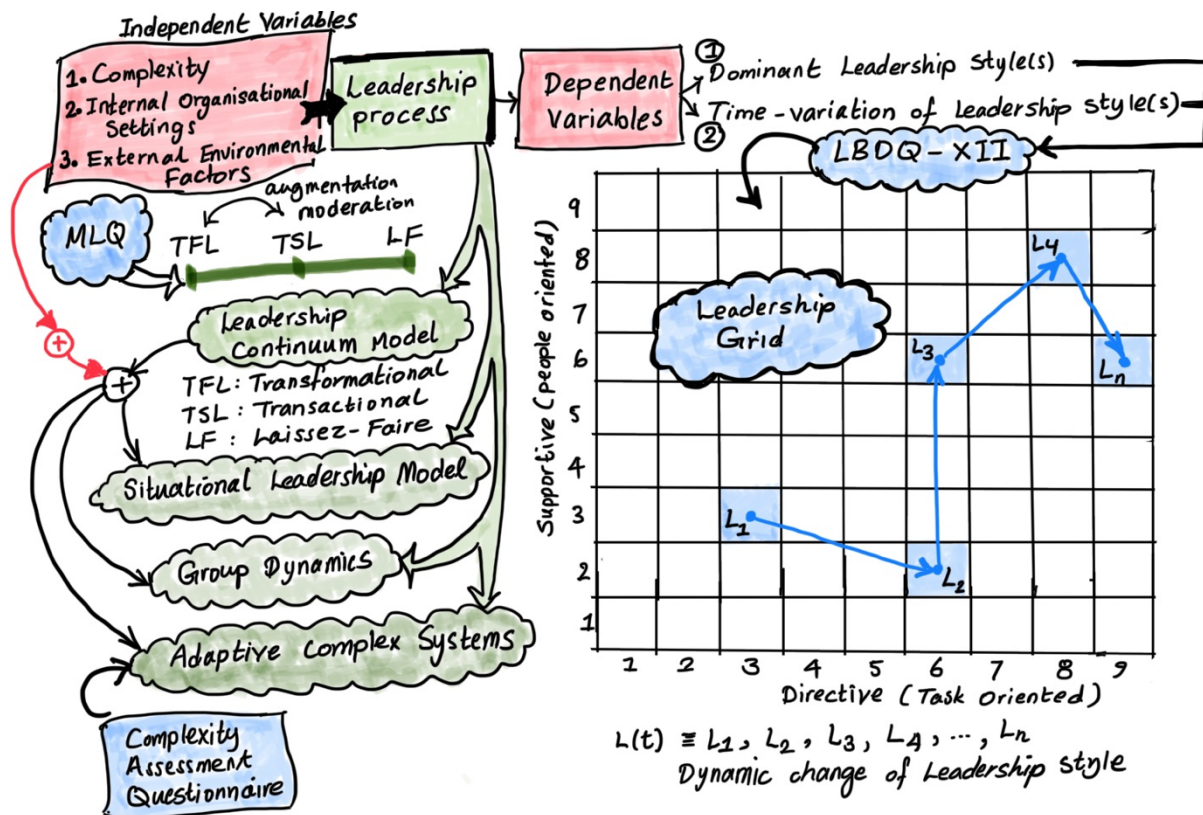 Independent Variables
1. Complexity
2. Internal Organisational
Settings
3. External Environmental
Factors
Leadership
process
Dependent
Variables
①
Dominant Leadership Style(s)
Time-variation of Leadership Style(s)
②
LBDQ-XII
augmentation
moderation
MLQ
TFL
TSL
LF
Leadership
Continuum Model
+
+
TFL: Transformational
TSL: Transactional
LF : Laissez-Faire
Situational Leadership Model
Group Dynamics
Adaptive Complex Systems
Complexity
Assessment
Questionnaire
Supportive (people oriented)
9
8
7
6
5
4
3
2
1
Leadership
Grid
L4
L3
Ln
L1
L2
1 2 3 4 5 6 7 8 9
Directive (Task Oriented)
L(t) ≡ L1, L2, L3, L4, ..., Ln
Dynamic change of Leadership Style